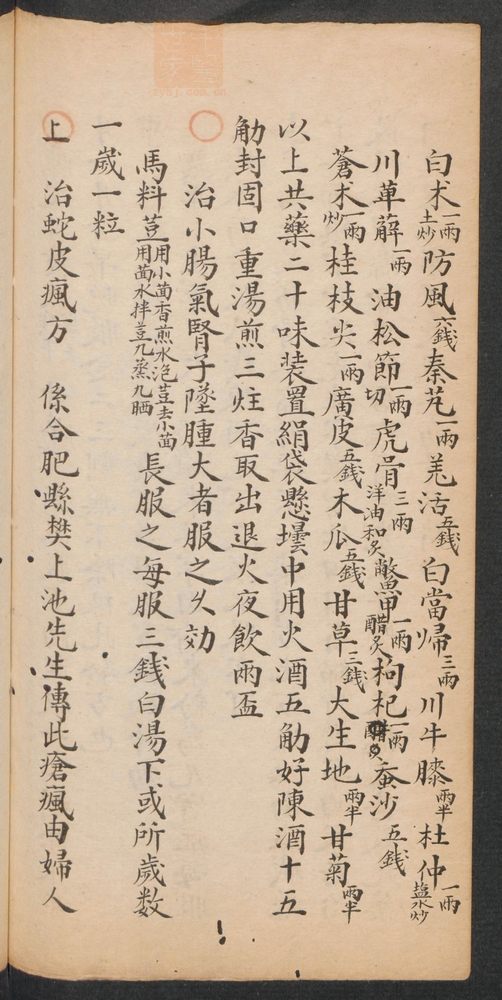 白朮一兩土炒防風六錢秦艽一兩羌活五錢白當歸三兩川牛膝兩半杜仲一兩盐水炒
川萆薢一兩油松節一兩切虎骨三兩洋油和炙鱉甲一兩醋炙枸杞一兩蚕沙五錢
蒼朮一兩炒桂枝尖一兩廣皮五錢木瓜五錢甘草三錢大生地兩半甘菊兩半
以上共藥二十味裝置絹袋懸壜中用火酒五觔好陳酒十五
觔封固口重湯煎三炷香取出退火夜飲兩盃
治小腸氣腎子墜腫大者服之久効
馬料荳用小茴香煎水泡荳去小茴用茴水拌荳九蒸九晒長服之每服三錢白湯下或所歲数
一歲一粒
上治蛇皮瘋方 係合肥縣樊上池先生傳此瘡瘋由婦人